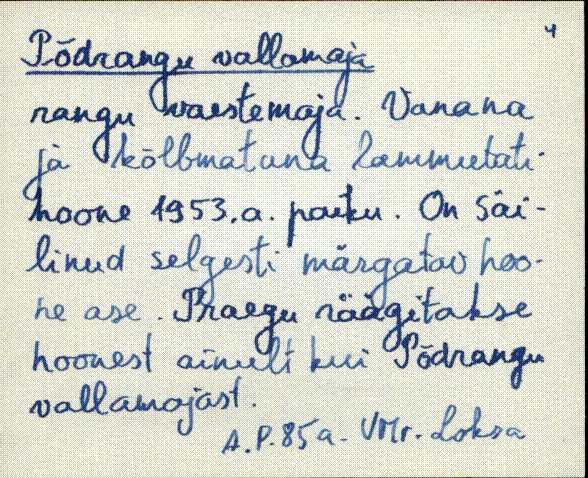 4
Põdrangu vallamaja
rangu vaestemaja. Vanana
ja kõlbmatuna lammutati
hoone 1953.a. paiku. On säi-
linud selgesti märgatav hoo-
ne ase. Praegu räägitakse
hoonest ainult kui Põdrangu
vallamajast.
A.P. 85a. VMr. Loksa